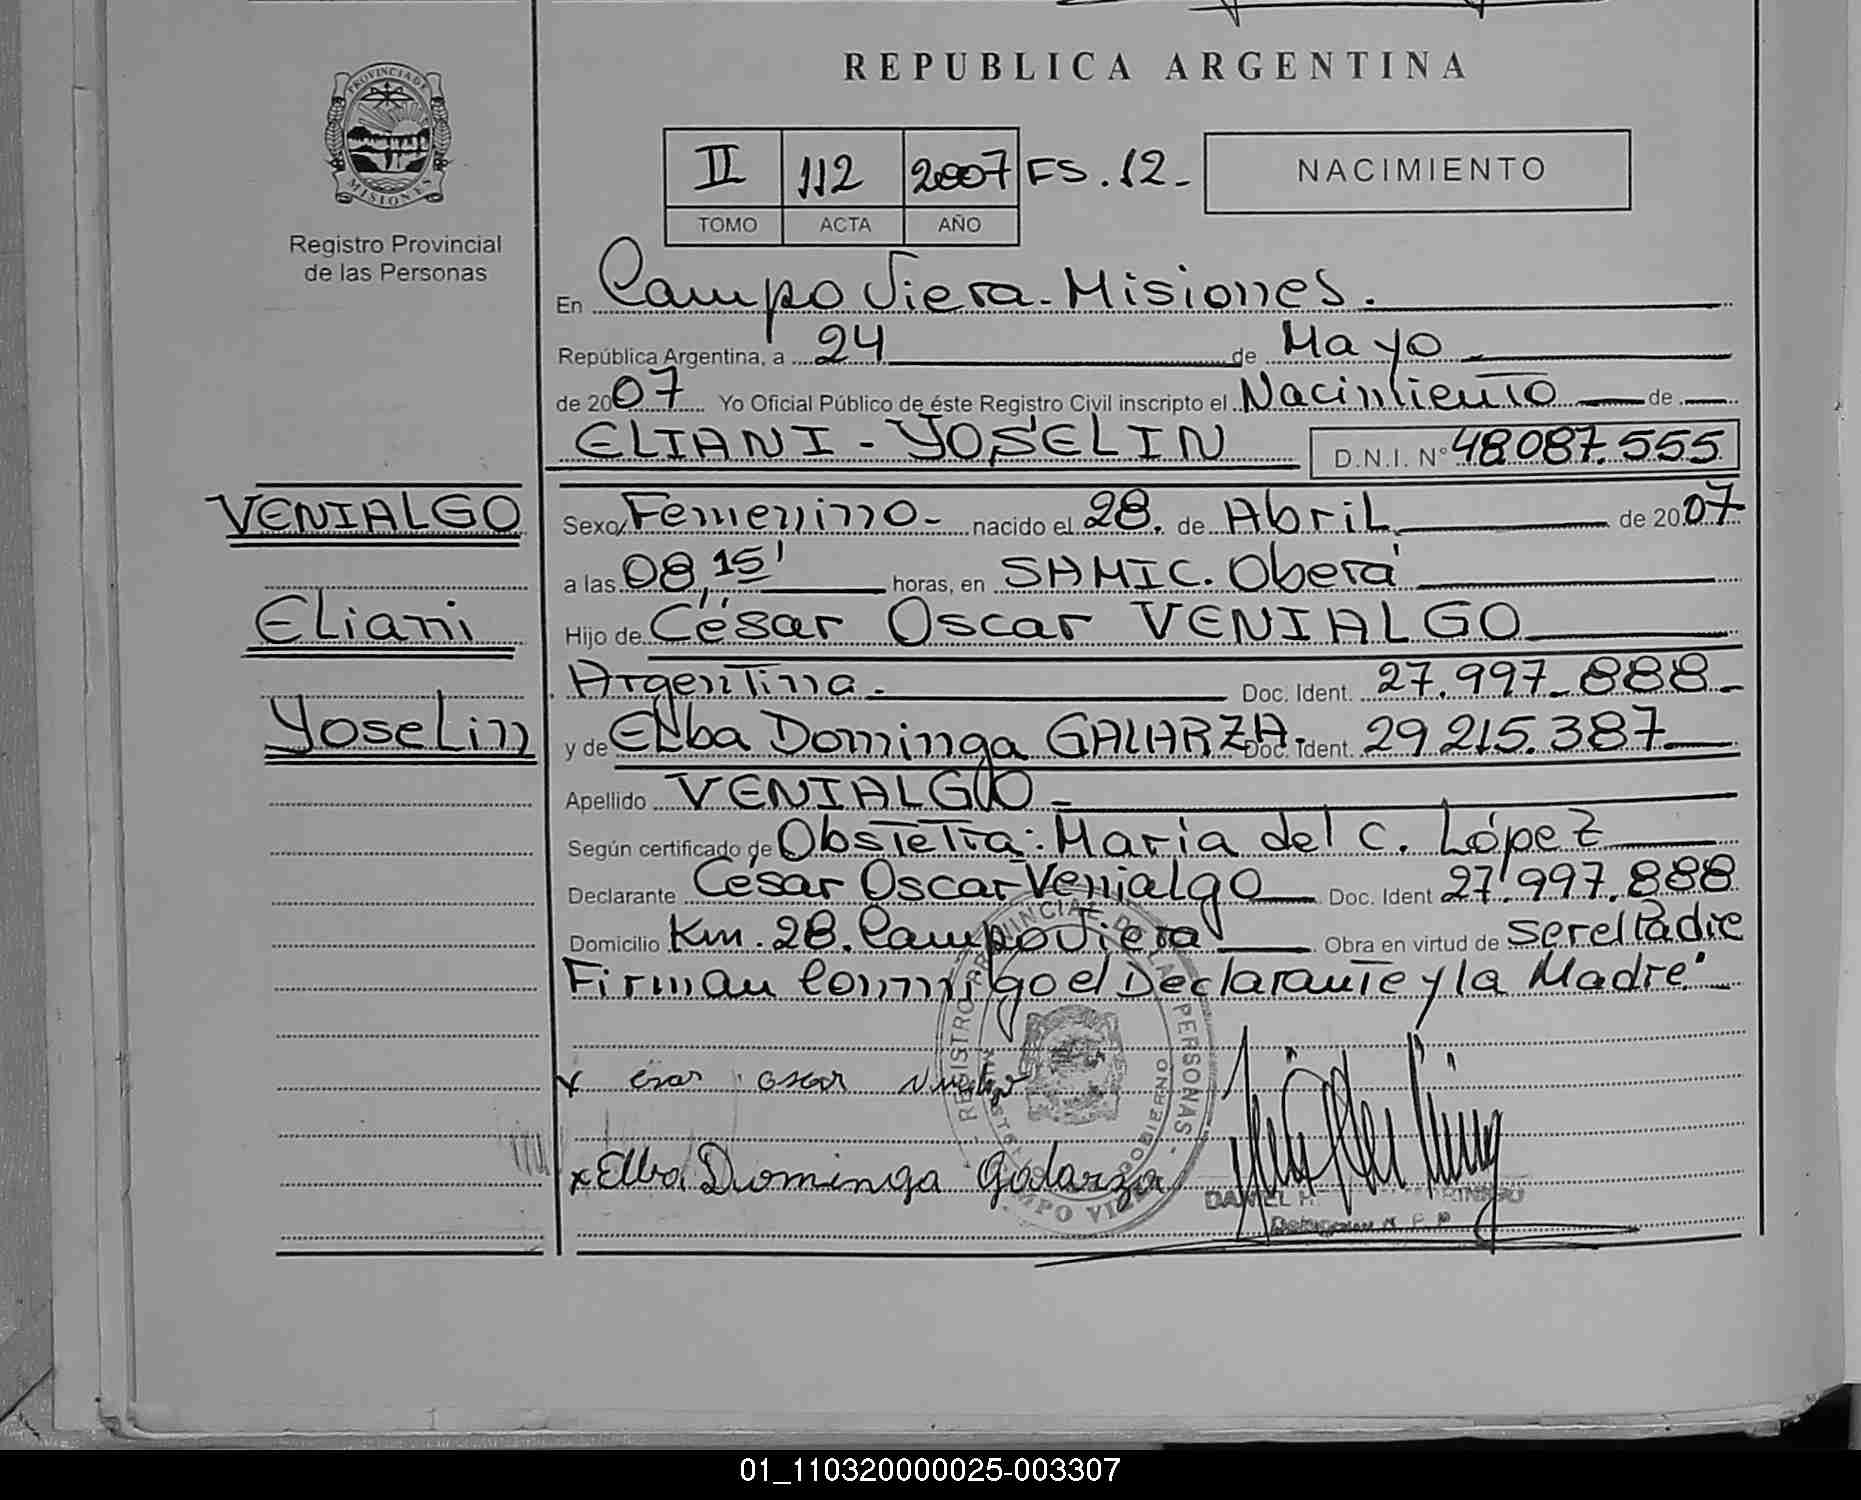 REPUBLICA ARGENTINA
PROVINCIA DE MISIONES
Registro Provincial
de las Personas
II 112 2007 FS. 12-
TOMO ACTA AÑO
NACIMIENTO
En Campo Viera - Misiones.
República Argentina, a 24 de Mayo
de 2007 Yo Oficial Público de éste Registro Civil inscripto el Nacimiento de
ELIANI - YOSELIN D.N.I. N° 48.087.555
VENIALGO
Eliani
Yoselin
Sexo Femenino - nacido el 28. de Abril de 2007
a las 08,15' horas, en SAMIC. Oberá
Hijo de César Oscar VENIALGO
Argentina. Doc. Ident. 27.997.888-
y de Elba Dominga GALARZA. Doc. Ident. 29.215.387
Apellido VENIALGO -
Según certificado de Obstetra: María del C. López
Declarante César Oscar Venialgo Doc. Ident 27.997.888
Domicilio Km. 28. Campo Viera Obra en virtud de ser el Padre
Firman conmigo el Declarante y la Madre.
REGISTRO PROVINCIAL DE LAS PERSONAS
x Elba Dominga Galarza
DANIEL H.
01_110320000025-003307